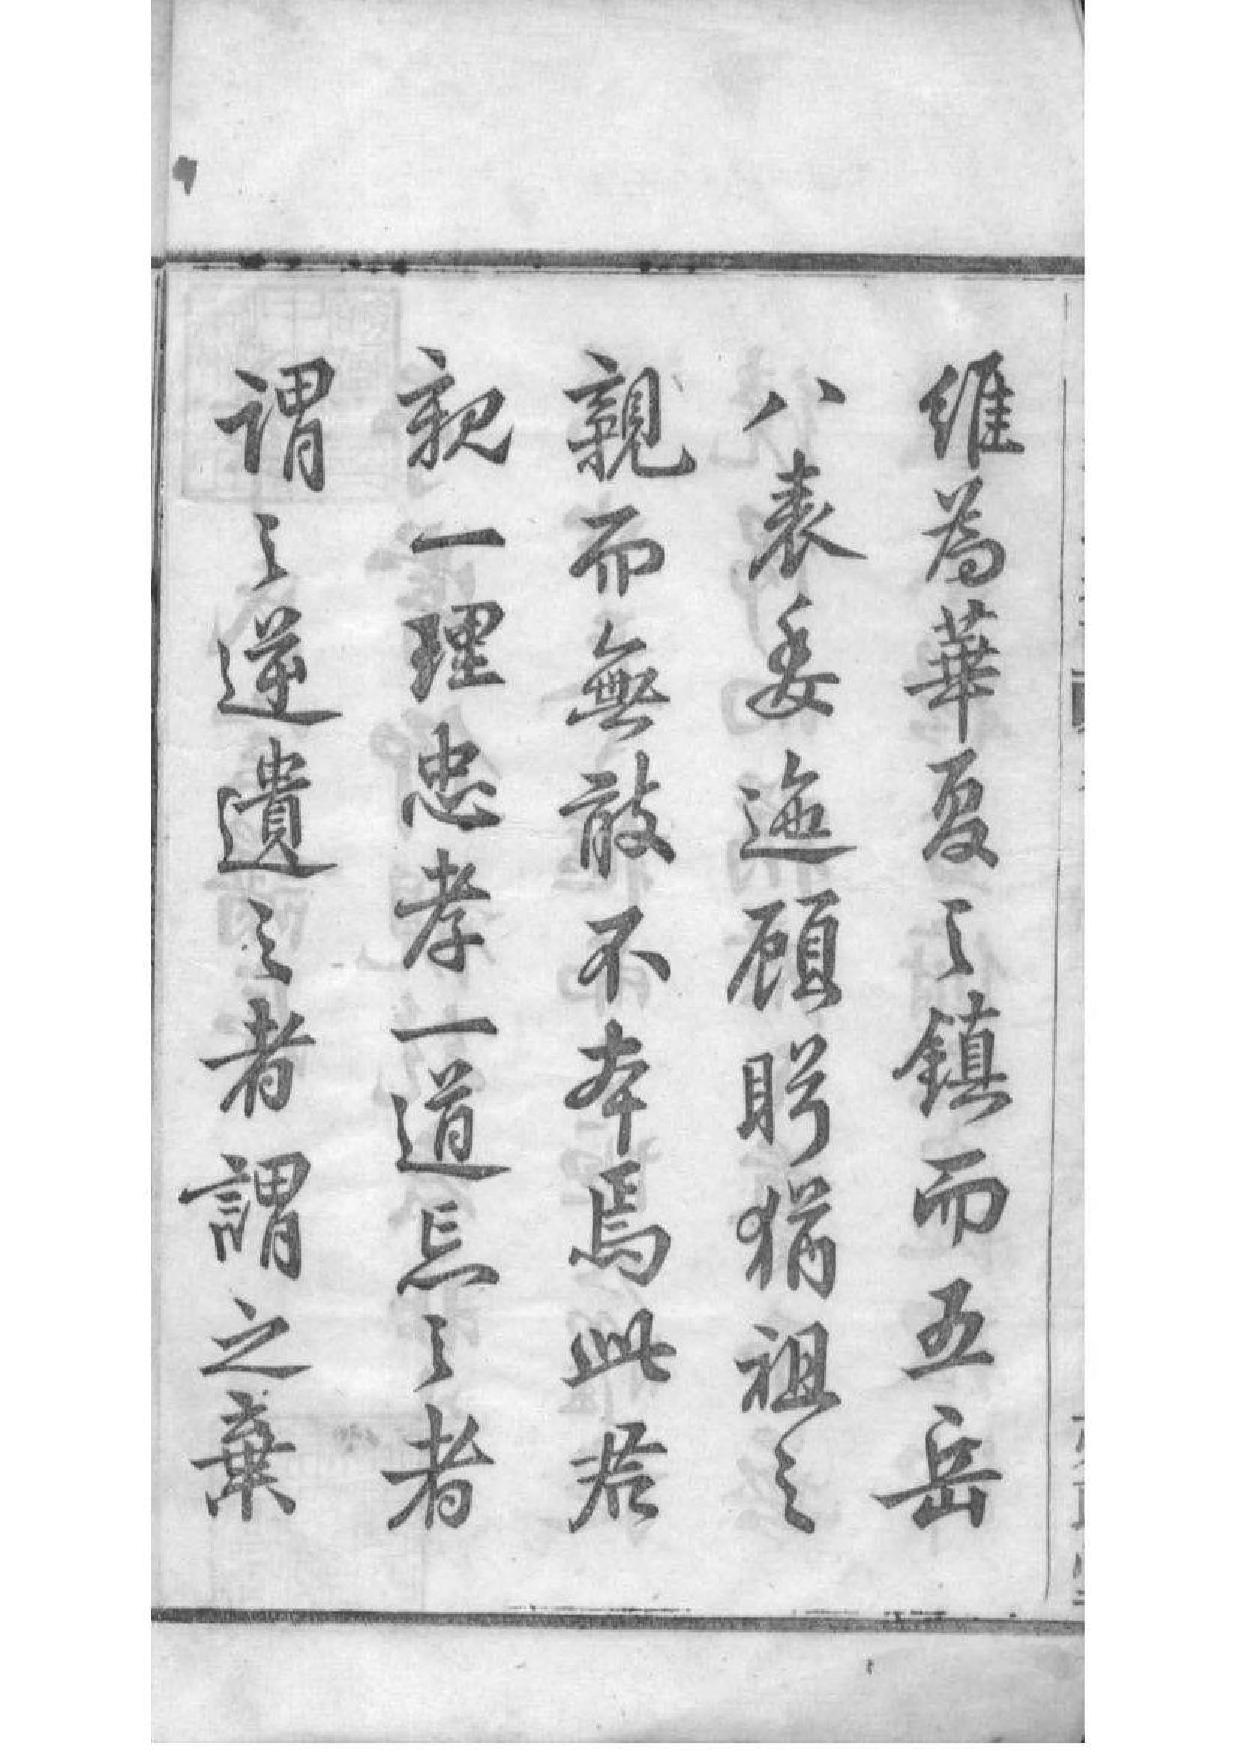 維為華夏之鎮而五岳
八表委迤顧盻猶祖之
親而無敢不本焉此君
親一理忠孝一道忘之者
謂之逆遺之者謂之棄